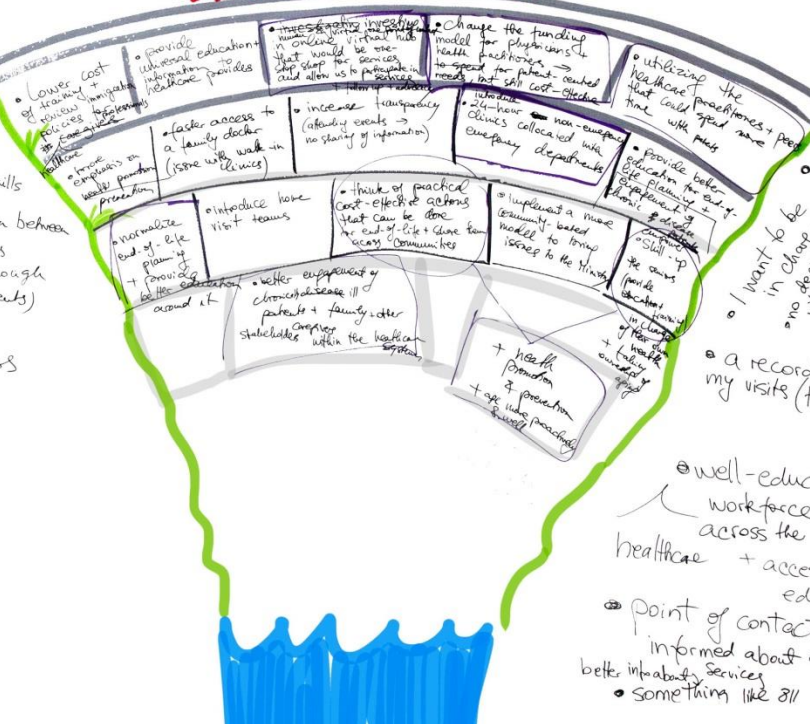 • Lower cost
of training +
review immigration
policies to professionals
healthcare
• provide
universal education +
information to
healthcare provides
investing
in online virtual hub
that would be one-
stop shop for services
and allow us to participate in
services
+ follow up +
• change the funding
model for physicians +
health practitioners →
to spend for patient-centred
needs but still cost-effective
• utilizing the
healthcare practitioners +
that could spend more
time with
• more
emphasis on
health promotion
prevention
• faster access to
a family doctor
(issue with walk-in
clinics)
• increase transparency
(attending events →
no sharing of information)
introduce
• 24-hour non-emergency
clinics collocated with
emergency departments
• provide better
education for end-of-
life planning +
engagement of
chronic disease
• normalize
end-of-life
planning
+ provide
better education
around it
• introduce home
visit teams
• think of practical
cost-effective actions
that can be done
for end-of-life + share them
across communities
• implement a more
community-based
model to bring
issues to the Ministry
• Skill-up
the seniors
provide
education +
training
in charge
of their own
health
+ taking
ownership of
aging
• better engagement of
chronic disease ill
patients + family + other
caregiver
stakeholders within the healthcare
system
+ health
promotion
& prevention
+ age more proactively
& well
between
• I want to be
in charge
• no
• a record
my visits
• well-educ
workforce
across the
healthcare + acce
• point of contact
informed about
better info about services
• something like 811